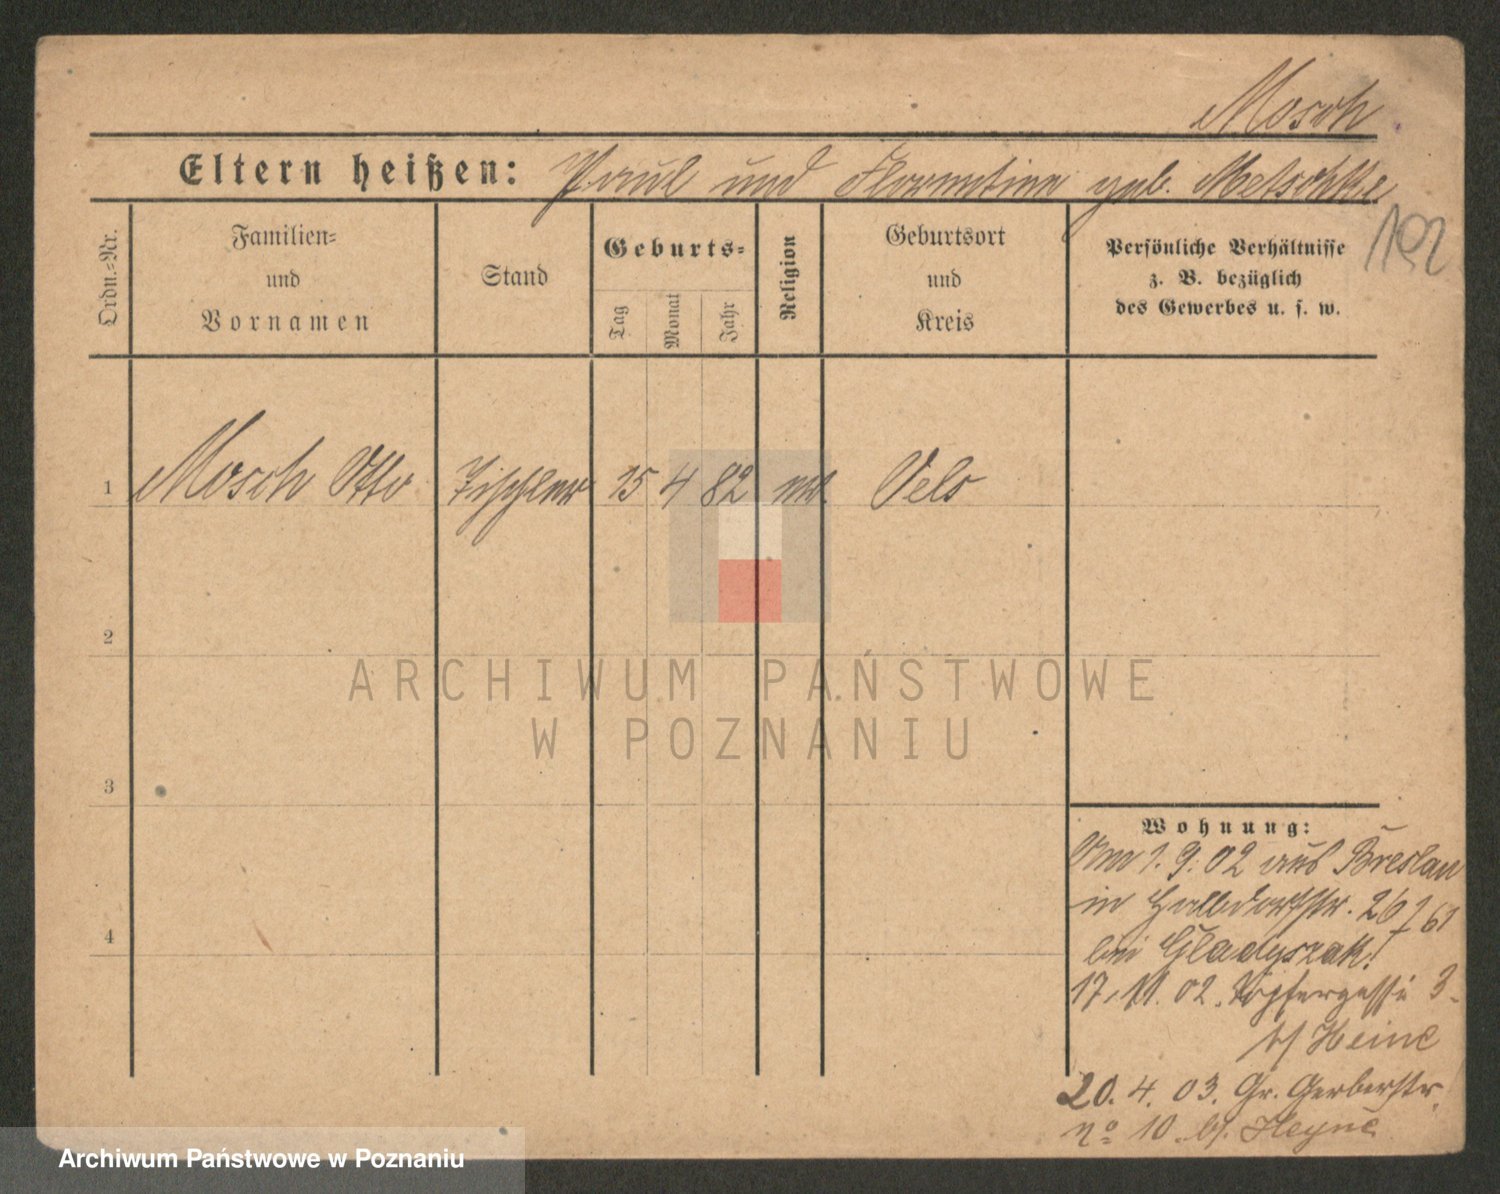 Mosch
Eltern heißen: Paul und Florentine geb. Metschke
192
Ordn.-Nr.
Familien-
und
Vornamen
Stand
Geburts-
Tag
Monat
Jahr
Religion
Geburtsort
und
Kreis
Persönliche Verhältnisse
z. B. bezüglich
des Gewerbes u. s. w.
1 Mosch Otto Tischler 15 4 82 Oels
2
3
4
ARCHIWUM PAŃSTWOWE
W POZNANIU
Wohnung:
1.9.02 aus Breslau
in Halbdorfstr. 26
bei Gladyszak!
17.11.02. Töpfergasse 3.
b/ Heine
20.4.03. Gr. Gerberstr.
No 10 b/. Heyne
Archiwum Państwowe w Poznaniu